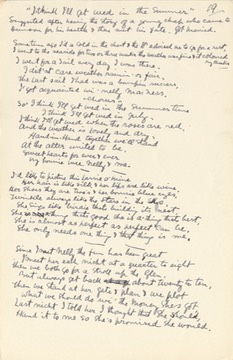 "I think I'll get wed in the Summer" 19
Suggested after hearing the story of a young chap who came to
Dunoon for his health & then met his fate. Got married.
Sometime ago I'd a cold in the chest & the Dr advised me to go for a rest,
I went to the seaside for two or three weeks the weather was fine &
I went for a sail every day I was there,
I didn't care weather rainin' or fair,
The last sail I had was a lump in money,
I got acquainted wi' Nelly McNess,
-Chorus-
So I think I'll get wed in the Summertime
I think I'll get wed in July.
I think I'll get wed when the roses are red,
And the weather is lovely and dry
Hand-in-Hand together we'll stand
At the alter united to be.
Sweethearts for ever & ever
My bonnie wee Nelly & me.
I'd like to picture this fairie o' mine
Her hair is like silk & her lips are like wine,
Her cheeks like two & two bonnie blue eyes,
Twinkle always like the stars in the skies
She sings like birds that in
She's a thing that's good she is a thing that's best,
She is almost as perfect as perfect can be,
She only needs one thing & that thing is me,
Since I met Nell the fun has been great
I meet her each night at a quarter to eight
Then we both go for a stroll up the Glen.
But always get back about twenty to ten,
Then we stand at her gate & plan & we plot
What we should do wi' the money she's got
Last night I told her I thought that she should
Hand it to me so she's promised she would.